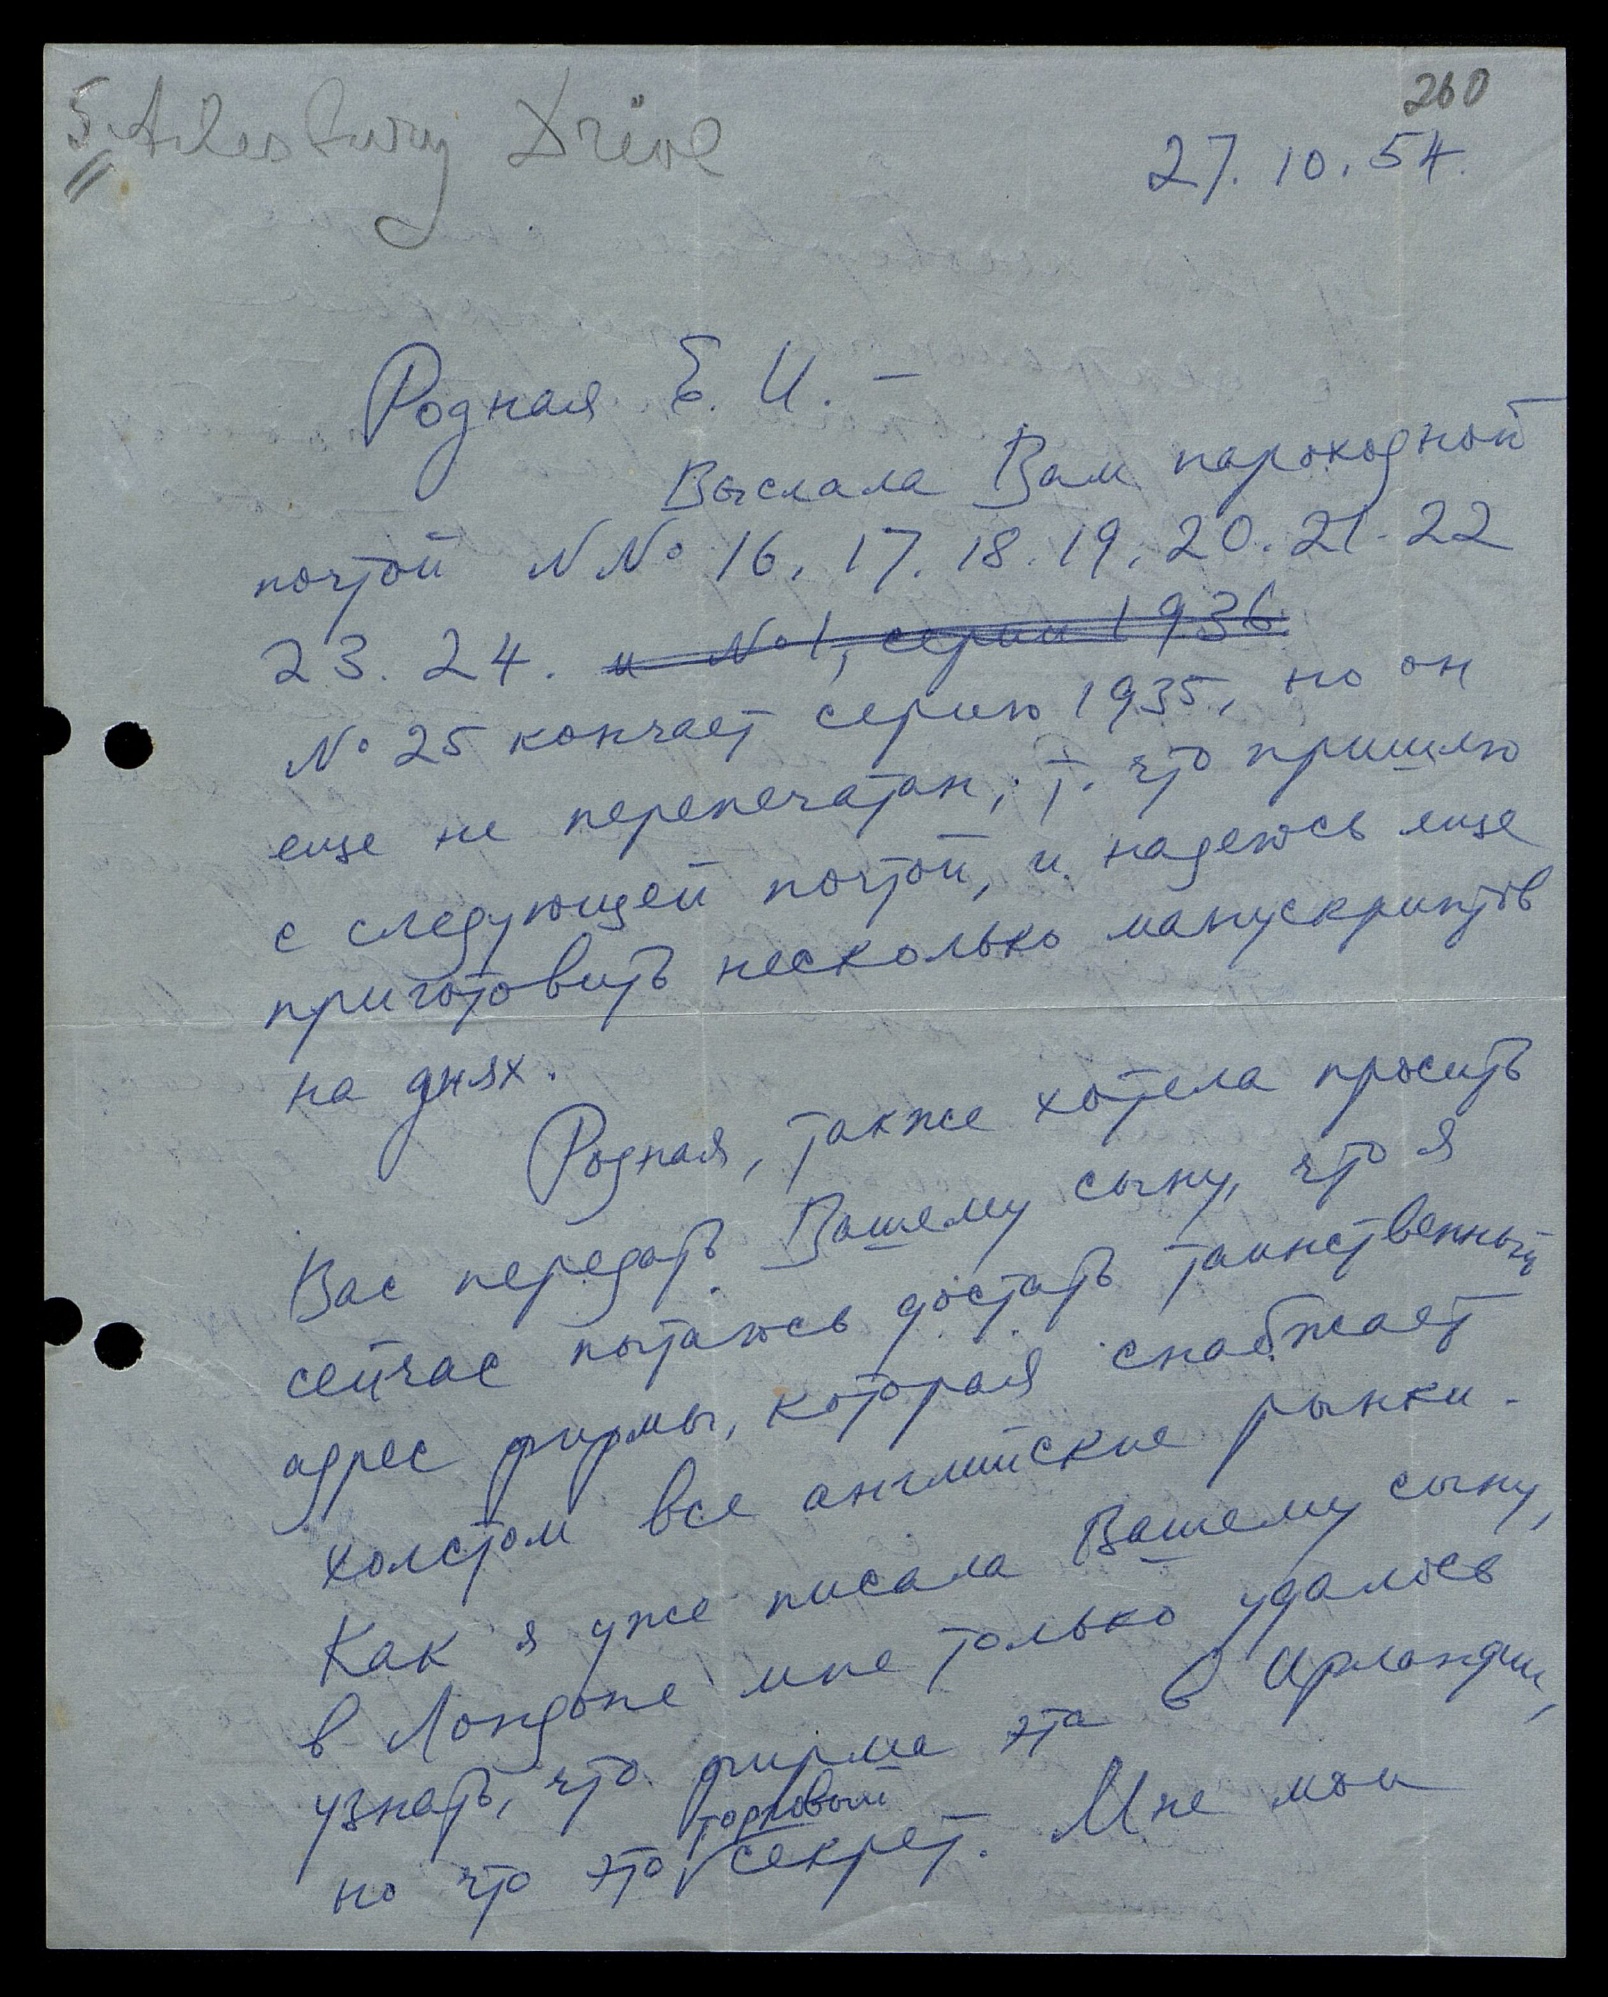 260
5 Ailesbury Drive
27.10.54.
Родная Е. И. –
Выслала Вам пароходной
почтой NNo 16. 17. 18. 19. 20. 21. 22
23. 24. и No 1, серии 1936
No 25 кончает серию 1935, но он
еще не перепечатан, т. что пришлю
с следующей почтой, и надеюсь еще
приготовить несколько манускриптов
на днях.
Родная, также хотела просить
Вас передать Вашему сыну, что я
сейчас пытаюсь достать таинственный
адрес фирмы, которая снабжает
холстом все английские рынки.
Как я уже писала Вашему сыну,
в Лондоне мне только удалось
узнать, что фирма эта в Ирландии,
но что это торговый секрет. Мне мои